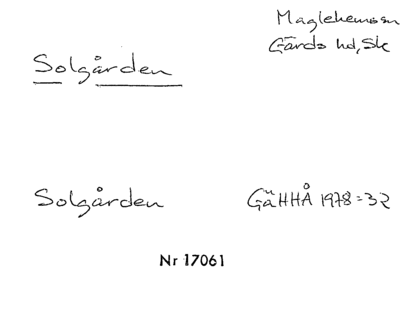 Maglehems sn
Gärds hd, Sk
Solgården
Solgården GäHHÅ 1978:32
Nr 17061